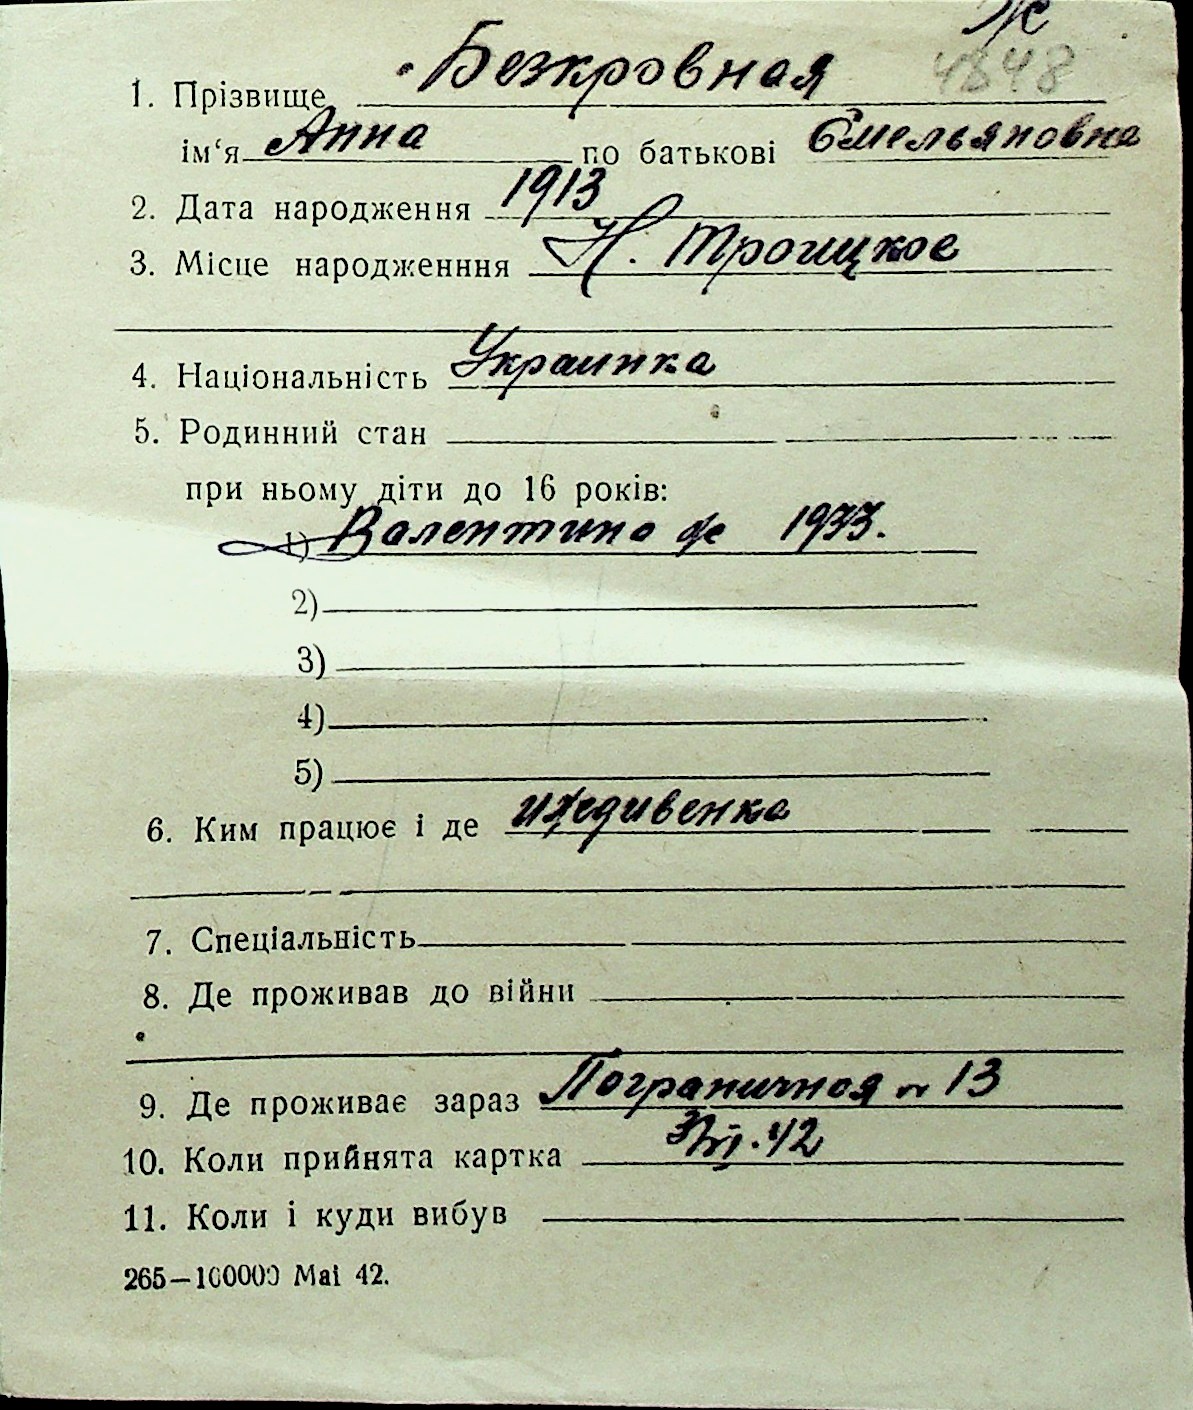 Ж
4848
1. Прізвище Безкровная
ім‘я Анна по батькові Емельяновна
2. Дата народження 1913
3. Місце народженння Н. Троицкое
4. Національність Украинка
5. Родинний стан
при ньому діти до 16 років:
1) Валентина ж 1933.
2)
3)
4)
5)
6. Ким працює і де иждивенка
7. Спеціальність
8. Де проживав до війни
9. Де проживає зараз Пограничная № 13
10. Коли прийнята картка 42
11. Коли і куди вибув
265—100000 Mai 42.